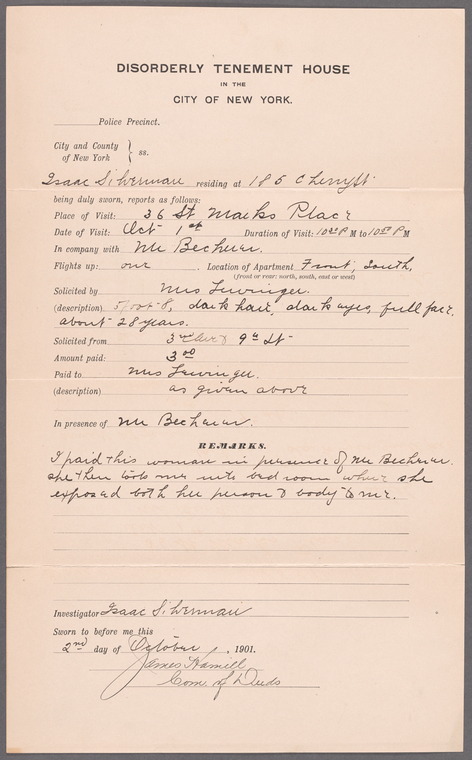 DISORDERLY TENEMENT HOUSE
IN THE
CITY OF NEW YORK.
Police Precinct.
City and County
of New York } ss.
Isaac Silverman residing at 185 Cherry St
being duly sworn, reports as follows:
Place of Visit: 36 St Marks Place
Date of Visit: Oct 1st Duration of Visit: M to M
In company with Mr Becherer.
Flights up: one Location of Apartment Front, South,
(front or rear: north, south, east or west)
Solicited by Mrs
(description) 5 foot 8, dark hair, dark eyes, full face,
about 28 years.
Solicited from 3rd Ave & 9th St
Amount paid: 3 00
Paid to Mrs
(description) as given above
In presence of Mr Becherer.
REMARKS.
I paid this woman in presence of Mr Becherer.
she then took me into bed room where she
exposed both her person & body to me.
Investigator Isaac Silverman
Sworn to before me this
2nd day of October, 1901.
James Hamill
Com of Deeds